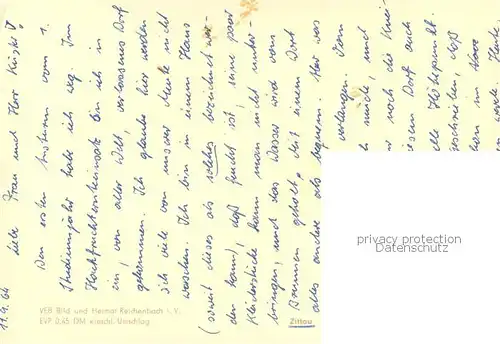 11.9.64
Liebe Frau und Herr
Den ersten vom 1.
Studienjahr habe ich weg. Im
Hackfruchternteeinsatz bin ich in
ein, von aller Welt, verlassenes Dorf
gekommen. Ich glaube hier werden
sich viele von unserer Meute nicht
waschen. Ich bin in einem Haus
(soweit dieses als solches bezeichnet
den kann), daß feucht ist, seine paar
Kleiderstücke kann man nicht unter-
bringen, und das Wasser wird vom
Brunnen geholt. Mit einem Wort
alles andere als bequem. Hier was
verlangen. Vom
müde, und
noch die Knei-
esem Dorf auch
elle Höhepunkt.
geschrieben, daß
VEB Bild und Heimat Reichenbach i. V.
EVP 0,45 DM einschl. Umschlag
Zittau
privacy protection
DATENSCHUTZ